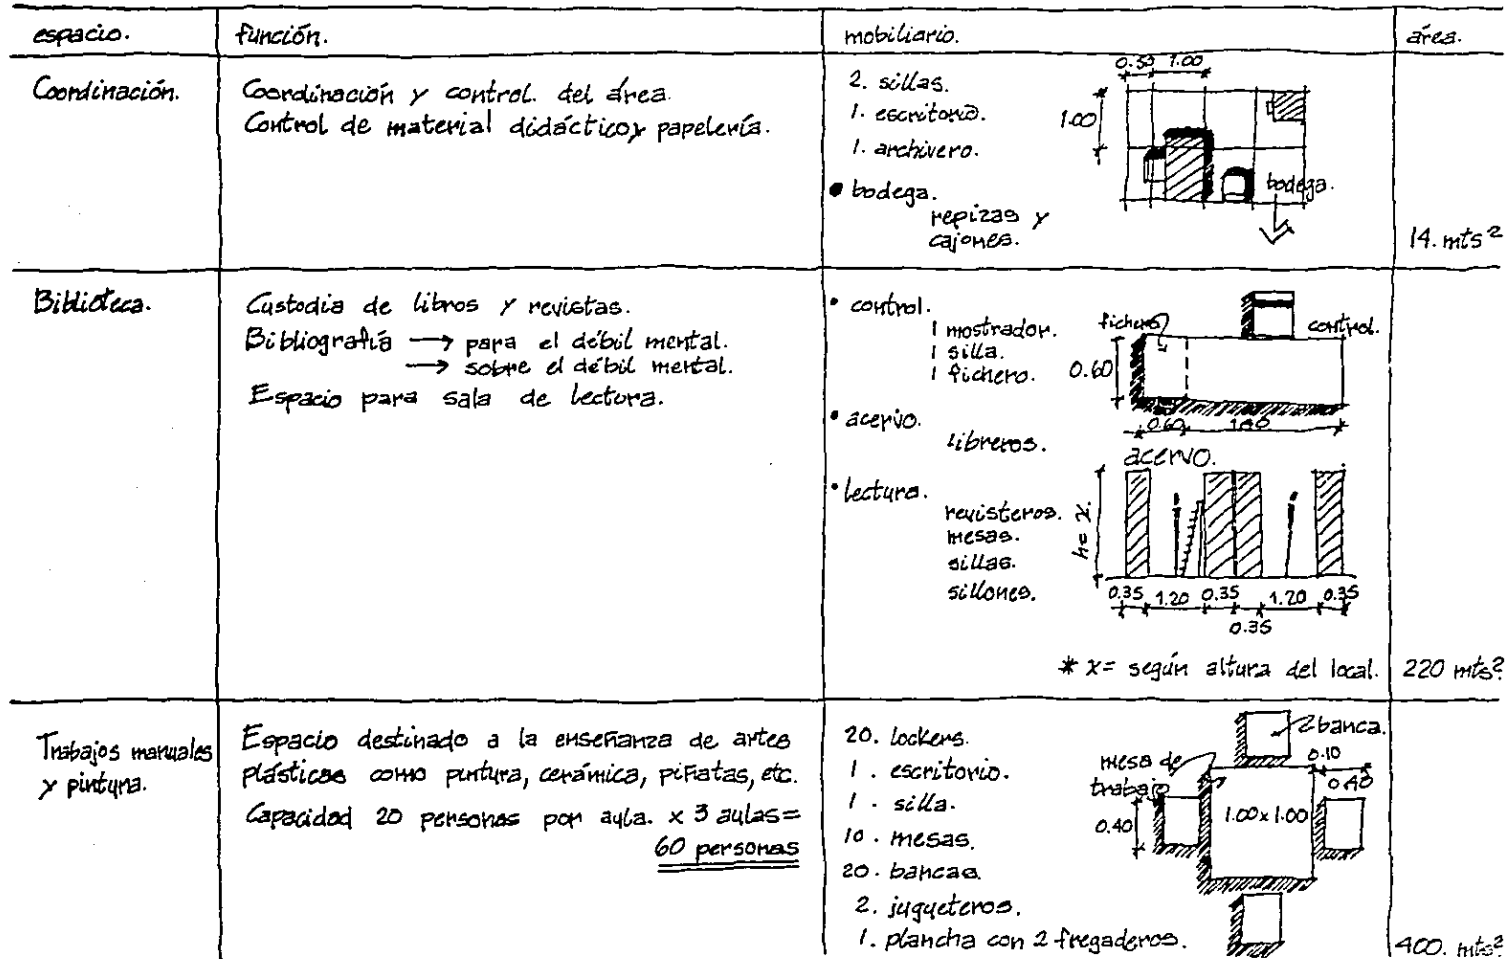 espacio.
función.
mobiliario.
área.
Coordinación.
Coordinación y control. del área.
Control de material didáctico y papelería.
2. sillas.
1. escritorio.
1. archivero.
• bodega.
repizas y
cajones.
1.00
1.00
bodega.
14. mts²
Biblioteca.
Custodia de libros y revistas.
Bibliografía → para el débil mental.
→ sobre el débil mental.
Espacio para sala de lectura.
• control.
1 mostrador.
1 silla.
1 fichero.
• acervo.
libreros.
• lectura.
revisteros.
mesas.
sillas.
sillones.
fichero
control.
0.60
0.60
acervo.
h= x.
0.35 1.20 0.35 1.20 0.35
0.35
* x= según altura del local.
220 mts²
Trabajos manuales
y pintura.
Espacio destinado a la enseñanza de artes
plásticas como pintura, cerámica, piñatas, etc.
Capacidad 20 personas por aula. x 3 aulas=
60 personas
20. lockers.
1. escritorio.
1. silla.
10. mesas.
20. bancas.
2. jugueteros.
1. plancha con 2 fregaderos.
banca.
mesa de
trabajo
0.10
0.40
0.40
1.00 x 1.00
400. mts²